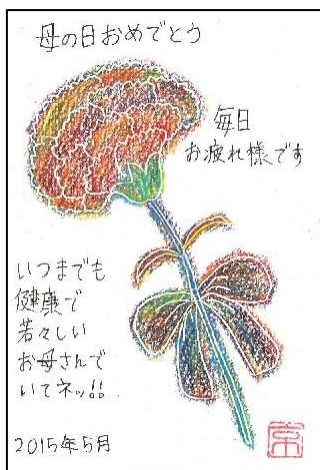 母の日おめでとう
毎日
お疲れ様です
いつまでも
健康で
若々しい
お母さんで
いてネッ!!
2015年5月
京